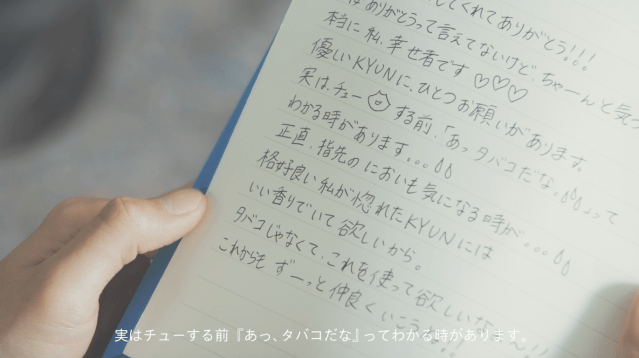 してくれてありがとう!!!
はありがとうって言えてないけど、ちゃーんと気づ
本当に私、幸せ者です♡♡♡
優しいKYUNに、ひとつお願いがあります。
実は、チューする前、「あっタバコだな。」って
わかる時があります...
正直、指先のにおいも気になる時が...
格好良い私が惚れたKYUNには
いい香りでいて欲しいから。
タバコじゃなくて、これを使って欲しいな
これからも ずーっと仲良くいこう
実はチューする前『あっ、タバコだな』ってわかる時があります。